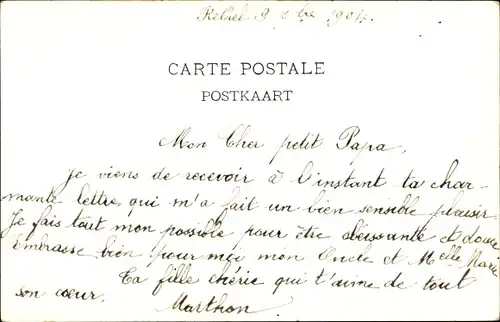 9 bre 1904.
CARTE POSTALE
POSTKAART
Mon Cher petit Papa,
Je viens de recevoir à l'instant ta char-
mante lettre qui m'a fait un bien sensible plaisir
Je fais tout mon possible pour être obéissante et douce
Embrasse bien pour moi mon Oncle et Melle Marie
Ta fille chérie qui t'aime de tout
son cœur.
Marthon.